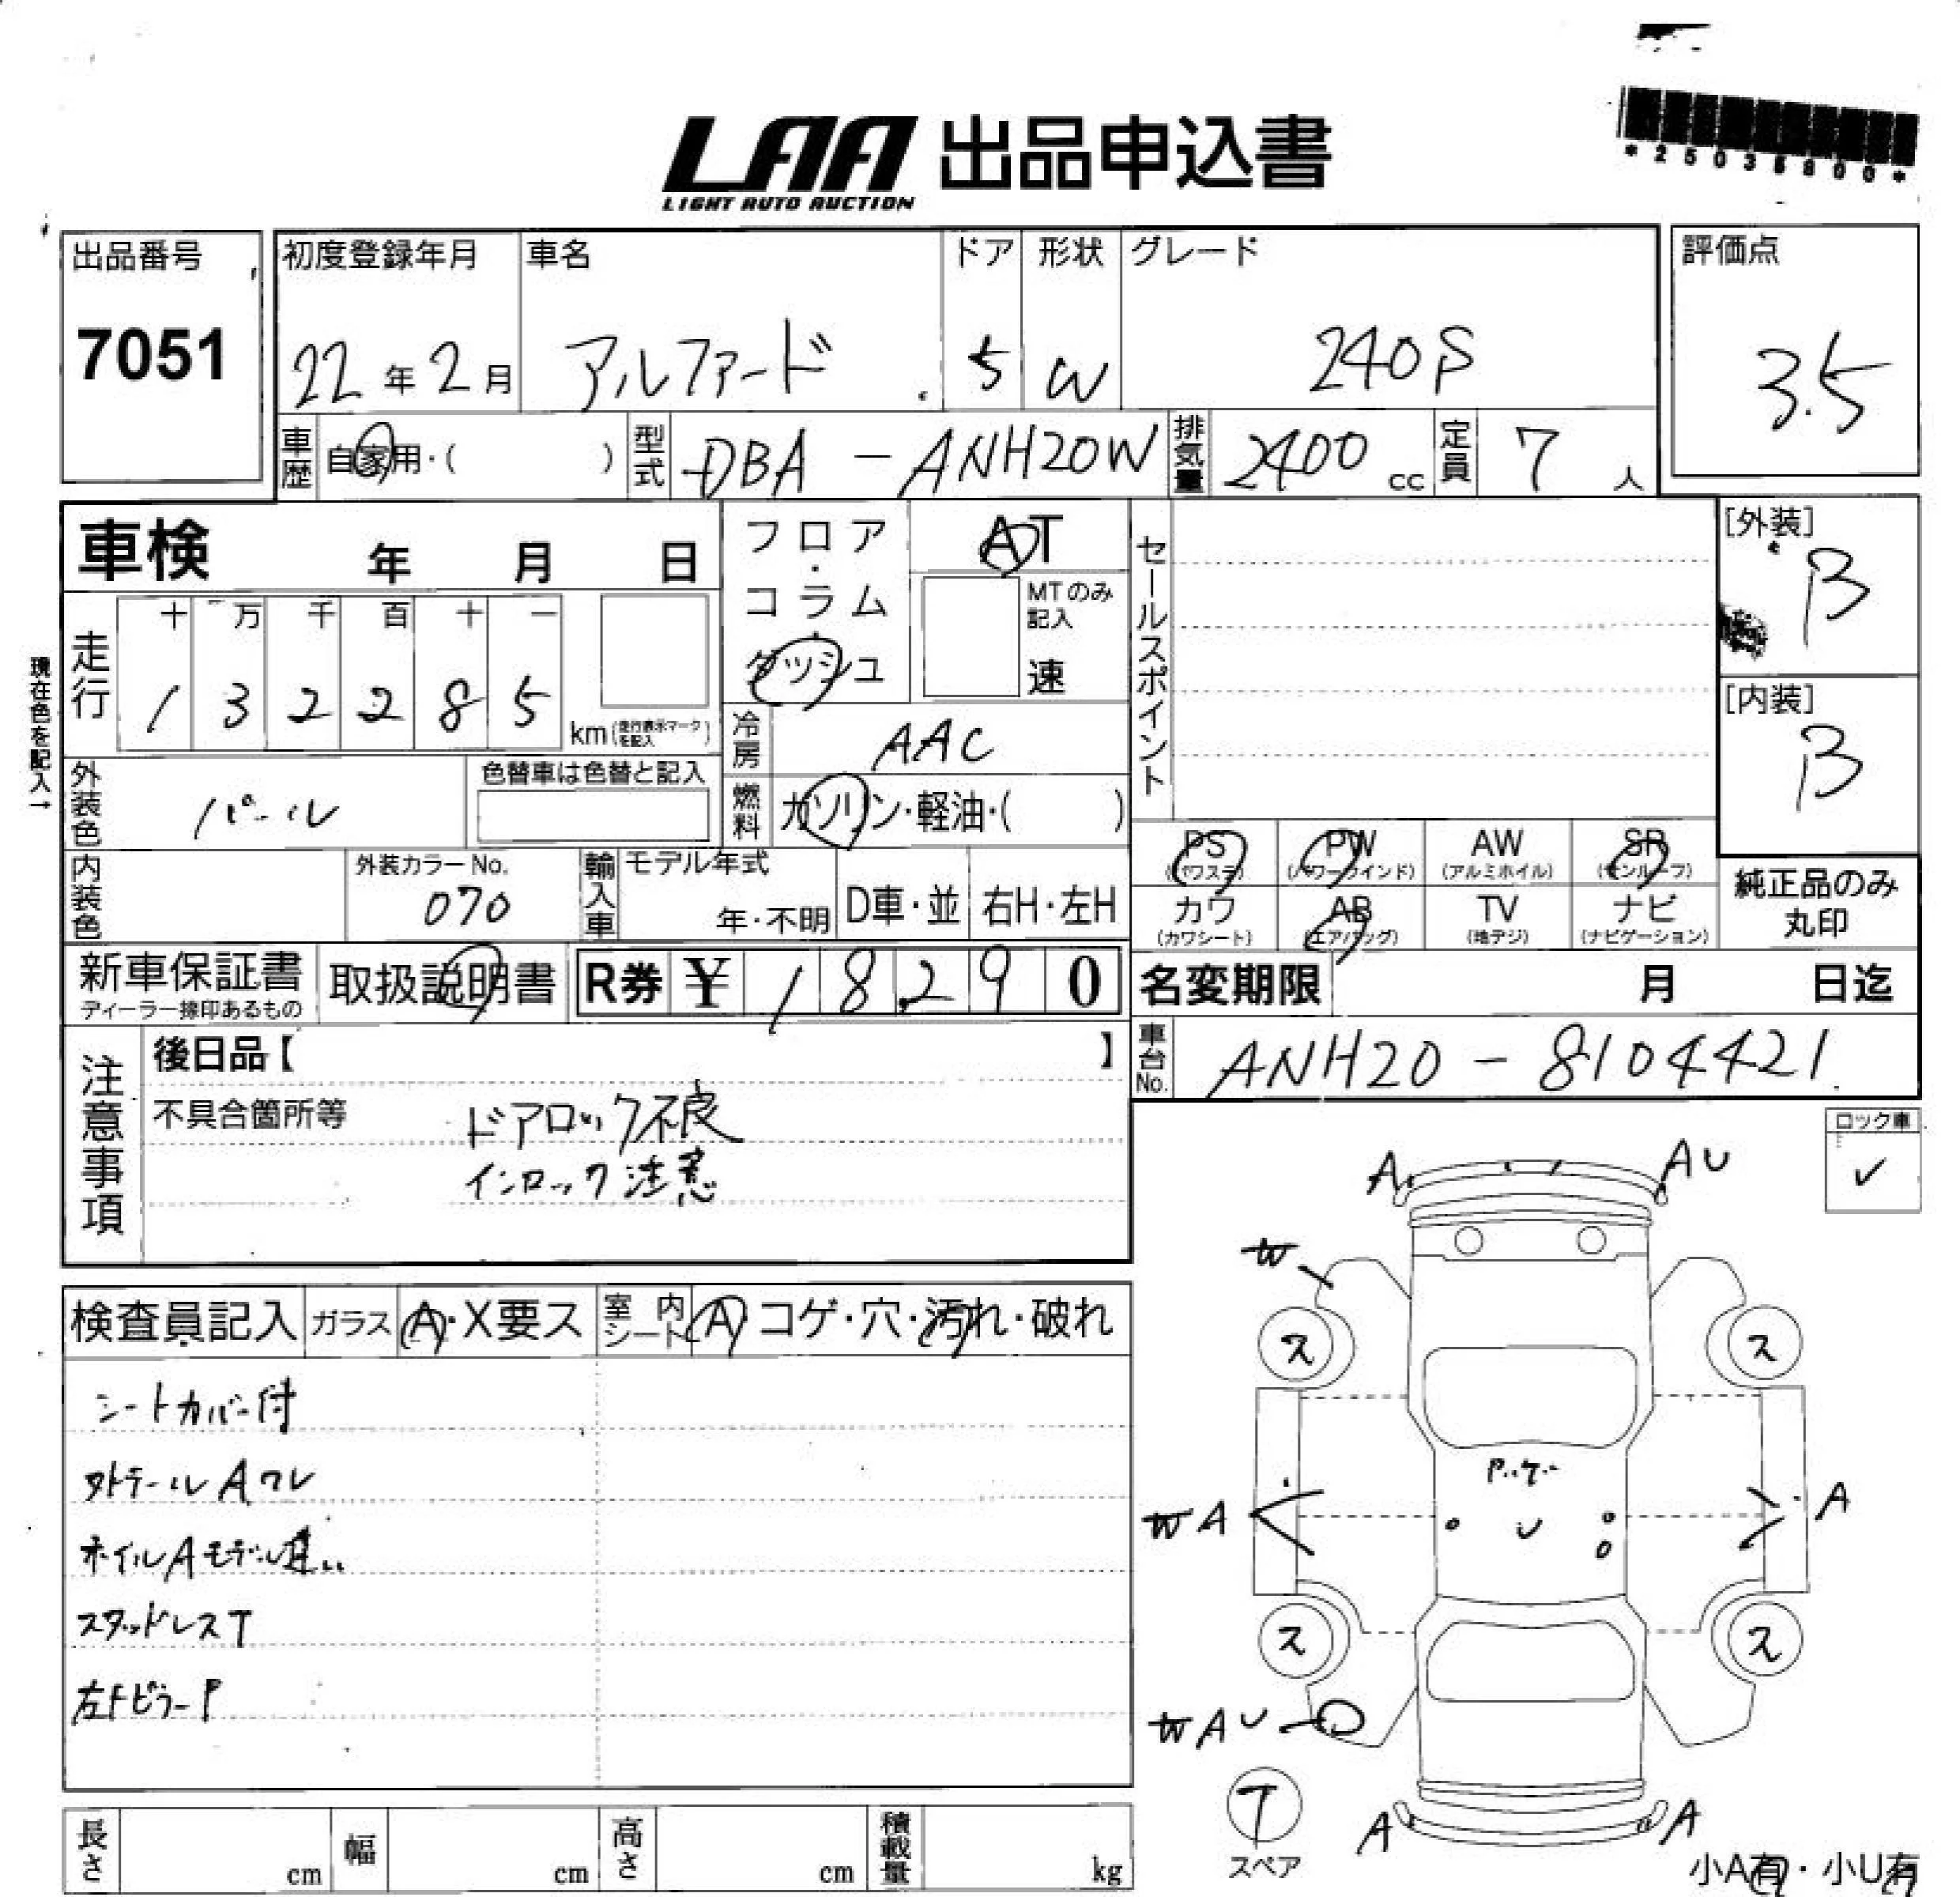 LAA 出品申込書
LIGHT AUTO AUCTION
出品番号
7051
初度登録年月
22年2月
車名
アルファード
ドア
5
形状
W
グレード
240S
評価点
3.5
車歴 自家用・( )
型式 DBA-ANH20W
排気量 2400 cc
定員 7 人
車検 年 月 日
フロア・コラム・ダッシュ
AT
MTのみ記入
速
セールスポイント
[外装]
B
[内装]
B
現在色を記入→
走行
十 万 千 百 十 一
1 3 2 2 8 5 km (走行表示マークを記入)
冷房 AAC
外装色 パール
色替車は色替と記入
燃料 ガソリン・軽油・( )
内装色
外装カラーNo.
070
輸入車 モデル年式
年・不明
D車・並
右H・左H
PS (パワステ)
PW (パワーウインド)
AW (アルミホイル)
SR (サンルーフ)
カワ (カワシート)
AB (エアバッグ)
TV (地デジ)
ナビ (ナビゲーション)
純正品のみ丸印
新車保証書
ディーラー捺印あるもの
取扱説明書
R券 ¥ 18,290
名変期限 月 日迄
車台No. ANH20-8104421
注意事項
後日品【 】
不具合箇所等
ドアロック不良
インロック注意
ロック車
✓
検査員記入
ガラス A・X要ス
室内シート A コゲ・穴・汚れ・破れ
シートカバー付
外テールAワレ
ホイルAモデル違い
スタッドレスT
左Fピラー P
A
AU
W
ス
ス
P.ケー
WA
A
U
ス
ス
WAU
T
スペア
A
A
小A有・小U有
長さ cm
幅 cm
高さ cm
積載量 kg